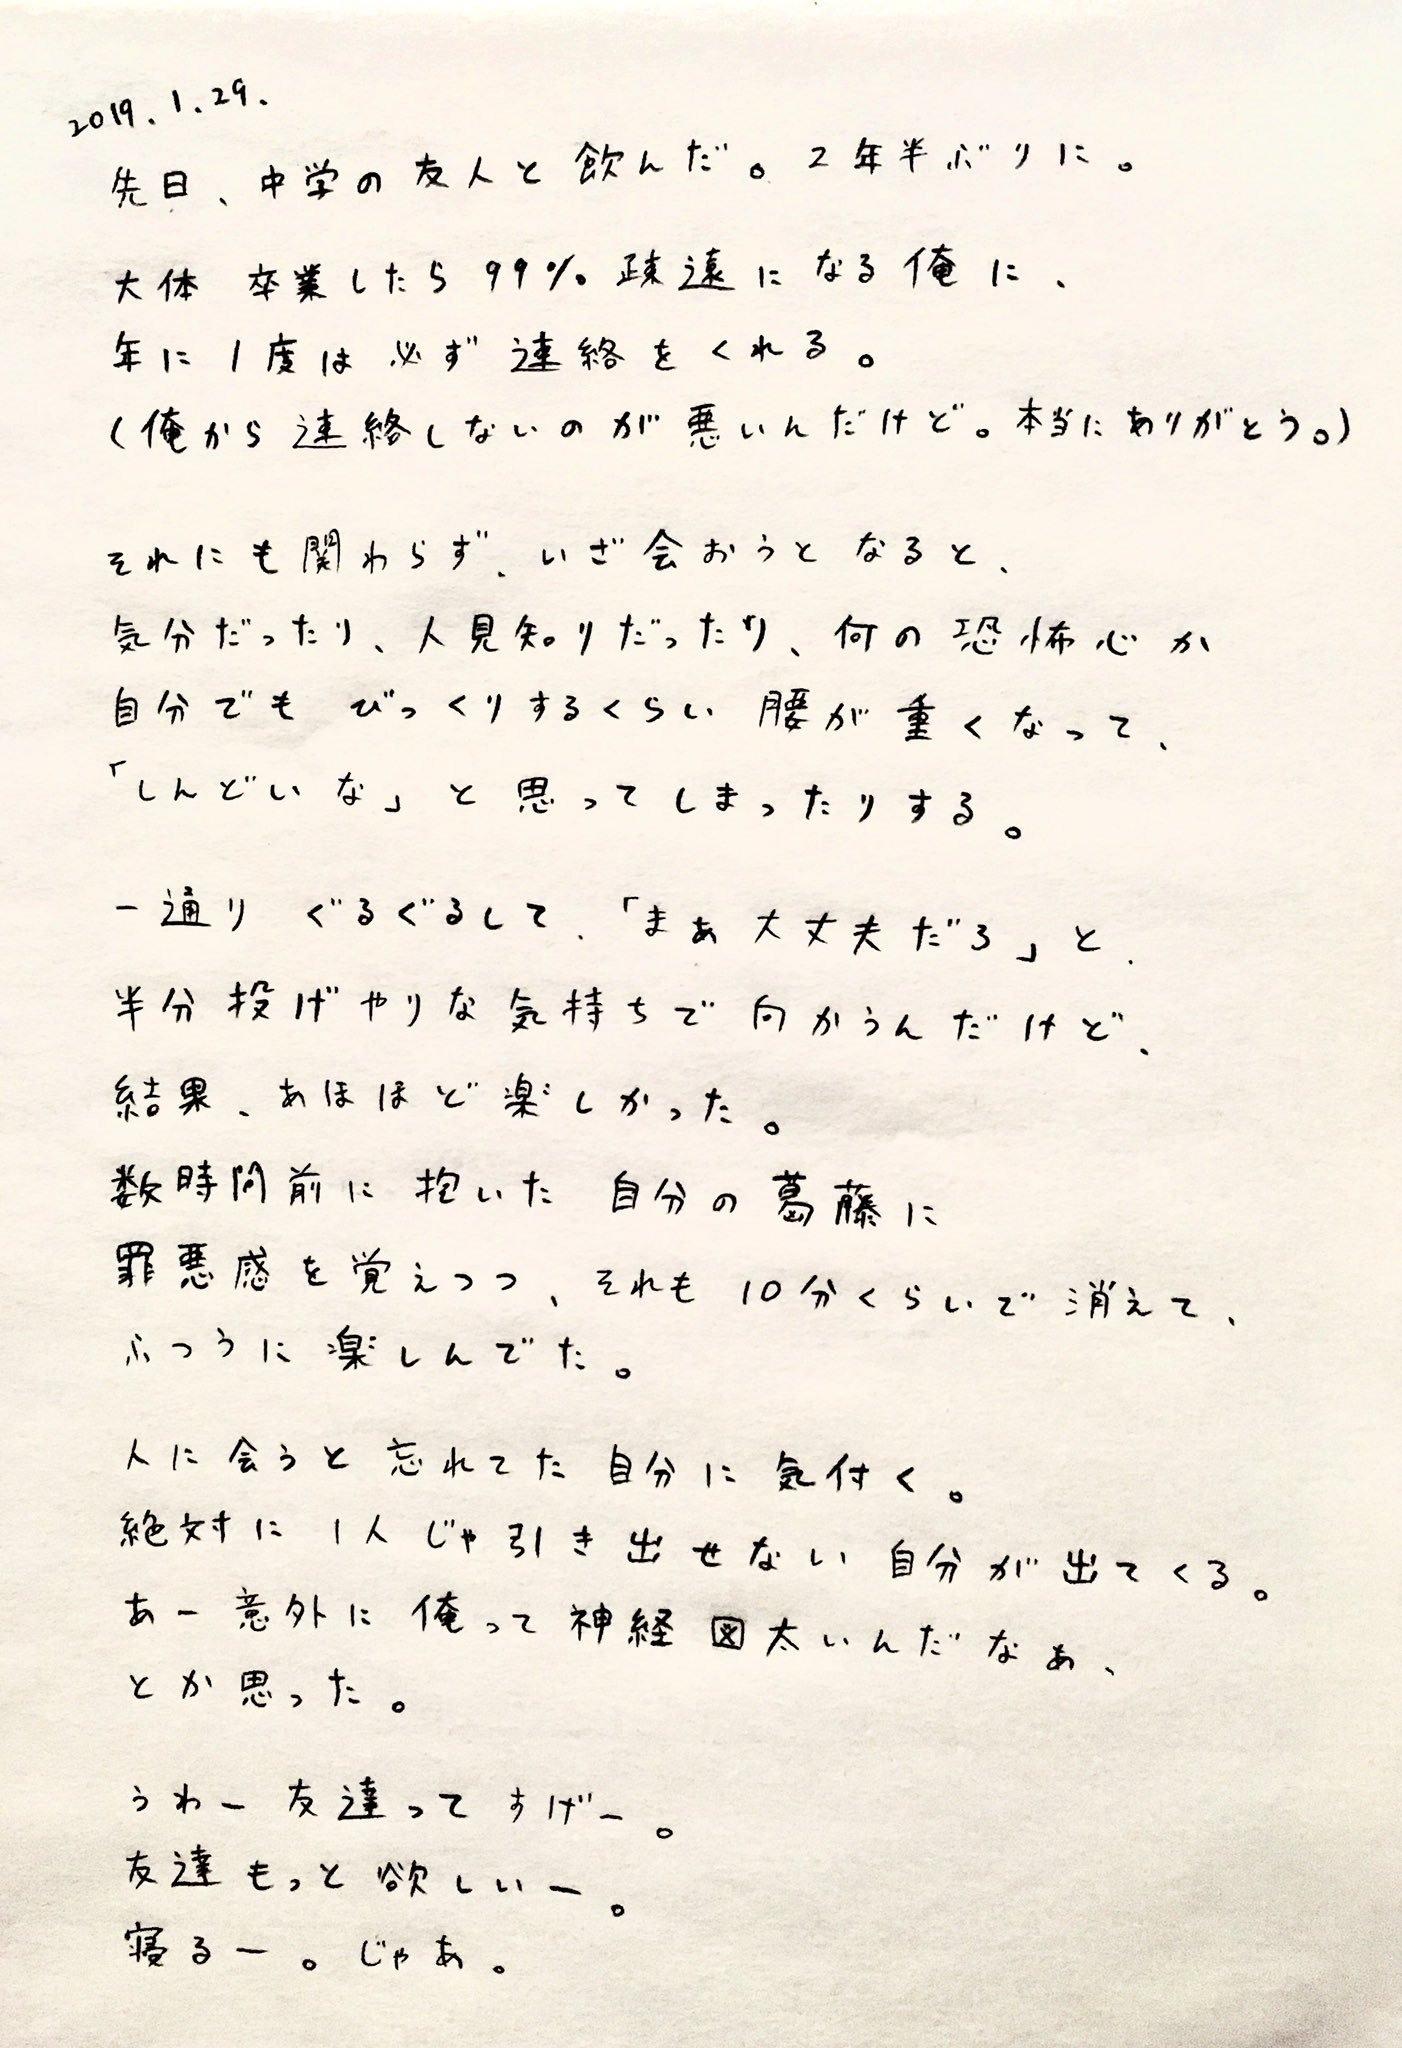 2019.1.29.
先日、中学の友人と飲んだ。2年半ぶりに。
大体 卒業したら99%疎遠になる俺に、
年に1度は必ず連絡をくれる。
(俺から連絡しないのが悪いんだけど。本当にありがとう。)
それにも関わらず、いざ会おうとなると、
気分だったり、人見知りだったり、何の恐怖心か
自分でも びっくりするくらい 腰が重くなって、
「しんどいな」と思ってしまったりする。
一通り ぐるぐるして、「まぁ大丈夫だろ」と、
半分投げやりな気持ちで向かうんだけど、
結果、あほほど楽しかった。
数時間前に抱いた 自分の葛藤に
罪悪感を覚えつつ、それも10分くらいで消えて、
ふつうに楽しんでた。
人に会うと忘れてた自分に気付く。
絶対に1人じゃ引き出せない自分が出てくる。
あー意外に俺って神経図太いんだなぁ、
とか思った。
うわー友達ってすげー。
友達もっと欲しいー。
寝るー。じゃあ。